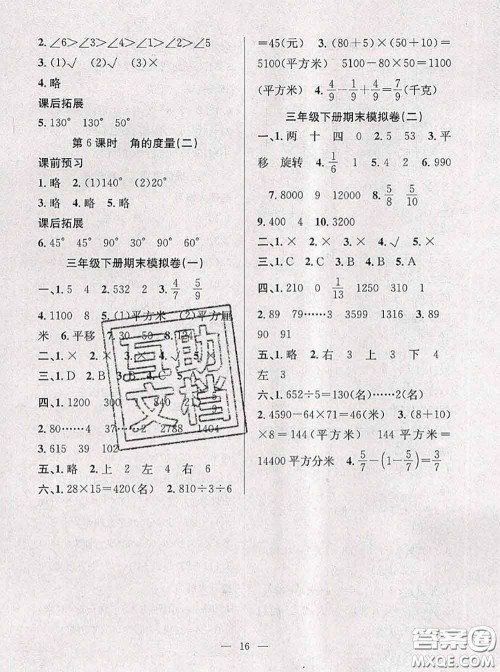 2.∠6>∠3>∠4>∠1>∠2>∠5
3.(1)√ (2)√ (3)×
4.略
课后拓展
5.130° 130° 50°
第6课时 角的度量(二)
课前预习
1.略 2.(1)140° (2)20°
3.略 4.略 5.略
课后拓展
6.45° 45° 90° 30° 60° 90°
三年级下册期末模拟卷(一)
一、1.5 4 2.532 2 3.4/7 5/9
4.1100 8 5.(1)平方米 (2)平方厘
米 6.平移 7.30 50 8.124
二、1.× 2.× 3. 4.×
三、1.D 2.B 3.
四、1.1200
2.80……4 37……2 2788 1404
3.615 39 102
五、1.略 2.上 2 左 4 右 6
六、1.28×15=420(名) 2.810÷3÷6
=45(元) 3.(80+5)×(50+10)=
5100(平方米) 5100-80×50=1100
(平方米) 4.4/9-1/9+4/9=7/9(千克)
三年级下册期末模拟卷(二)
一、1.两 十 四 0 2.5 53 3.平
移 旋转 4.1/6 1 5.4 2 6.990
1 7.8000 9 12000 8.5/8 5/10
9.400 4 10.3200
二、1.× 2.× 3.× 4.× 5.×
三、1.C 2.C 3.A 4.B 5.A
四、1.210 0 1/13 1250 310 0
2.89 29……3 1518 3.1350
90 91
五、1.略 2.右 3 上 3 下 4
左 3
六、1.652÷5=130(名)……2(名)
2.4590-64×71=46(个) 3.(8+10)
×8=144(平方米) 144平方米=
14400平方分米 4.5/7-(1-5/7)=3/7
16
答案圈
MXQE.COM